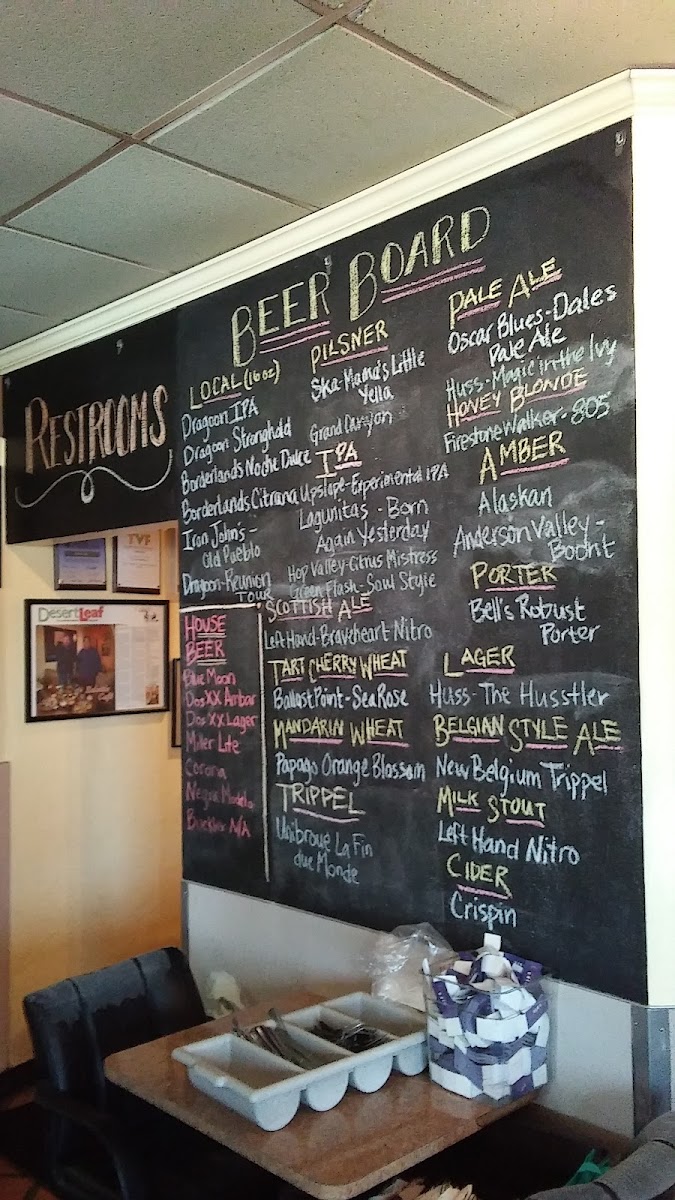 BEER BOARD
RESTROOMS
LOCAL (16 oz)
Dragoon IPA
Dragoon Stronghold
Borderlands Noche Dulce
Borderlands Citrana
Iron John's -
Old Pueblo
Dragoon - Reunion
Tour
HOUSE
BEER
Blue Moon
Dos XX Ambar
Dos XX Lager
Miller Lite
Corona
Negra Modelo
Buckler N/A
PILSNER
Ska-Mama's Little
Yella
Grand Canyon
IPA
Upslope-Experimental IPA
Lagunitas - Born
Again Yesterday
Hop Valley-Citrus Mistress
Green Flash-Soul Style
SCOTTISH ALE
Left Hand-Braveheart Nitro
TART CHERRY WHEAT
Ballast Point - Sea Rose
MANDARIN WHEAT
Papago Orange Blossom
TRIPPEL
Unibroue La Fin
due Monde
PALE ALE
Oscar Blues-Dales
Pale Ale
Huss-Magic in the Ivy
HONEY BLONDE
Firestone Walker - 805
AMBER
Alaskan
Anderson Valley -
Boont
PORTER
Bell's Robust
Porter
LAGER
Huss-The Husstler
BELGIAN STYLE ALE
New Belgium Trippel
MILK STOUT
Left Hand Nitro
CIDER
Crispin
DesertLeaf
TVF